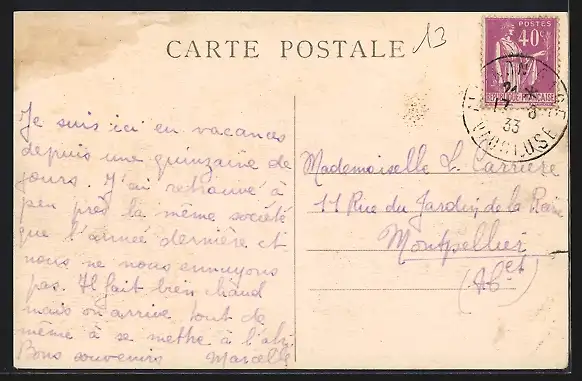 CARTE POSTALE
13
POSTES
40c
REPUBLIQUE FRANÇAISE
17 - 8
33
VAUCLUSE
Je suis ici en vacances
depuis une quinzaine de
jours. J'ai retrouvé à
peu près la même société
que l'année dernière et
nous ne nous ennuyons
pas. Il fait bien chaud
mais on arrive tout de
même à se mettre à l'abri
Bons souvenirs Marcelle
Mademoiselle L. Carrière
11 Rue du Jardin de la Reine
Montpellier
(Hlt)